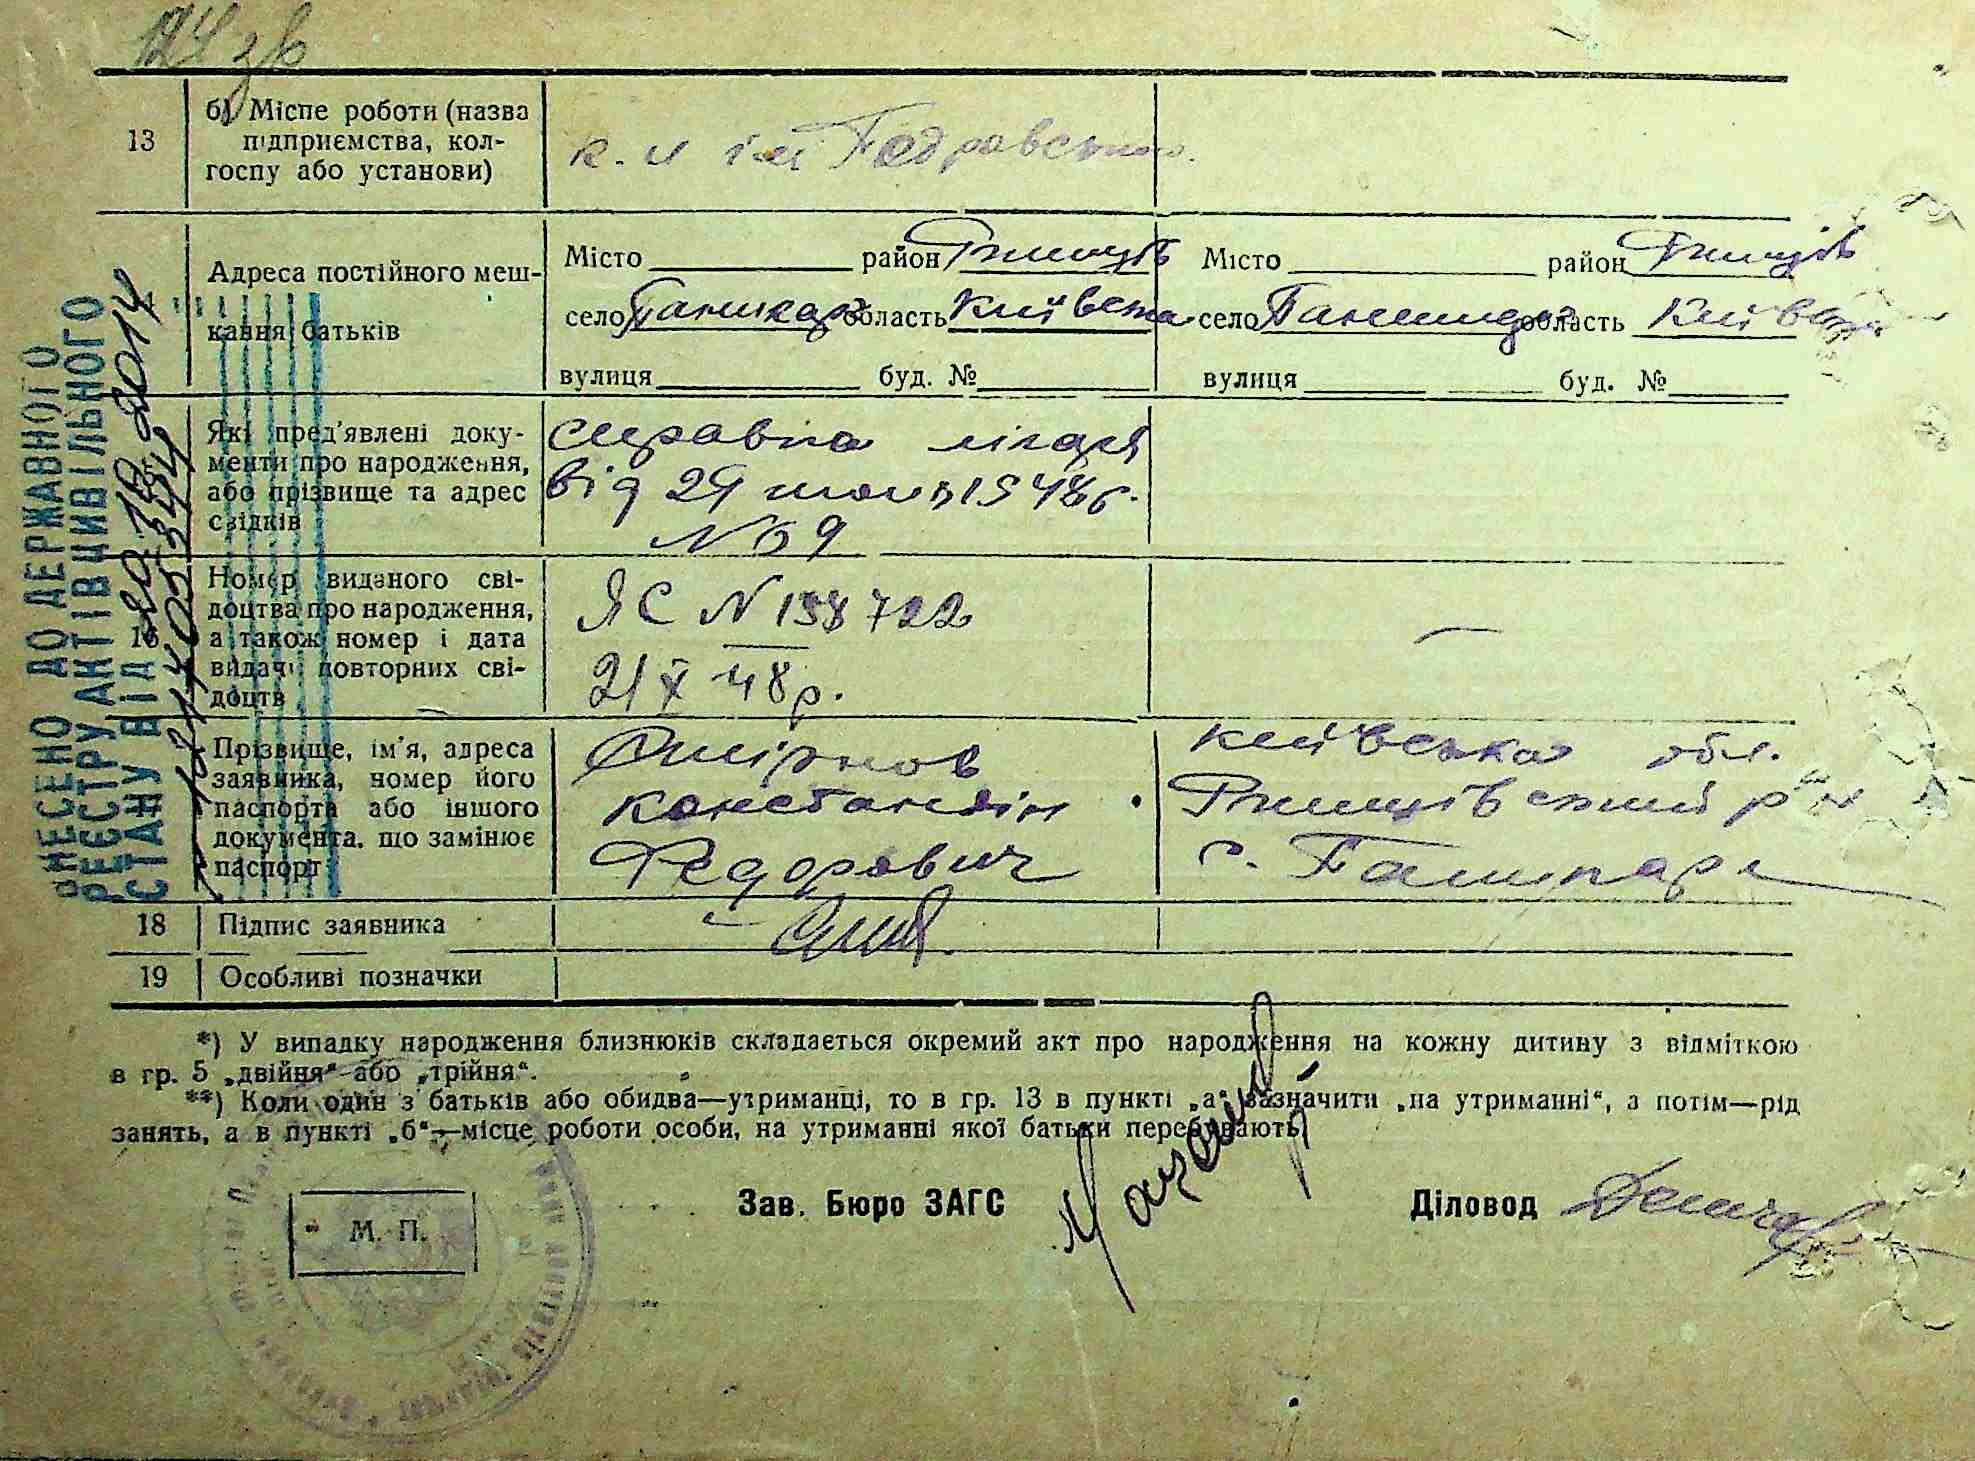 124 зв
13
б) Місце роботи (назва
підприємства, кол-
госпу або установи)
к. и ім
Адреса постійного меш-
кання батьків
Місто район Ржищів
село область Київська
вулиця буд. №
Місто район Ржищів
село область Київська
вулиця буд. №
Які пред'явлені доку-
менти про народження,
або прізвище та адрес
свідків
справка лікаря
від 29 1948 г.
N 69
16
Номер виданого сві-
доцтва про народження,
а також номер і дата
видачі повторних сві-
доцтв
ЯС N 158722
21 X 48 р.
—
Прізвище, ім'я, адреса
заявника, номер його
паспорта або іншого
документа, що замінює
паспорт
Смірнов
Константін
Федорович
київська обл.
Ржищівський р-н
с.
18
Підпис заявника
19
Особливі позначки
*) У випадку народження близнюків складається окремий акт про народження на кожну дитину з відміткою
в гр. 5 „двійня“ або „трійня“.
**) Коли один з батьків або обидва—утриманці, то в гр. 13 в пункті „а“ зазначити „на утриманні“, а потім—рід
занять, а в пункті „б“—місце роботи особи, на утриманні якої батьки перебувають
М. П.
Зав. Бюро ЗАГС
Діловод
ВНЕСЕНО ДО ДЕРЖАВНОГО
РЕЄСТРУ АКТІВ ЦИВІЛЬНОГО
СТАНУ ВІД 2014